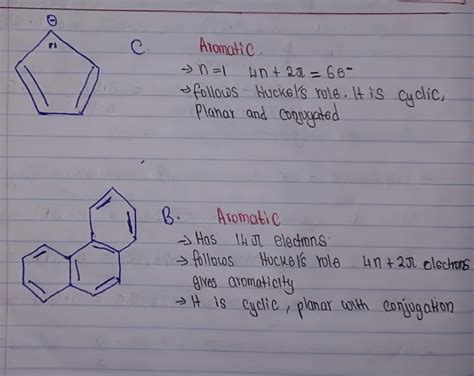 ⊖
C. Aromatic
→ n=1 4n+2π = 6e⁻
→ follows Huckel's role. It is cyclic,
Planar and conjugated
B. Aromatic
→ Has 14π electrons
→ follows Huckel's role 4n+2π electrons
gives aromaticity
→ It is cyclic, planar with conjugation